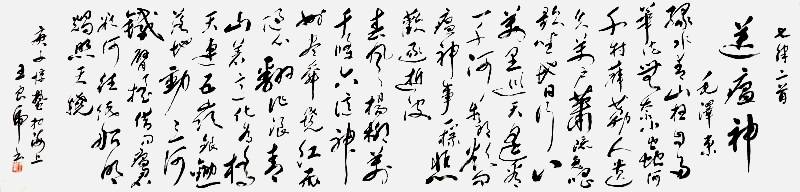 七律二首
送瘟神
毛泽东
绿水青山枉自多
华佗无奈小虫何
千村薜荔人遗
矢万户萧疏鬼
唱歌坐地日行八
万里巡天遥看
一千河牛郎欲问
瘟神事一样悲
欢逐逝波
春风杨柳万
千条六亿神
州尽舜尧红雨
随心翻作浪青
山着意化为桥
天连五岭银锄
落地动三河
铁臂摇借问瘟君
欲何往纸船明
烛照天烧